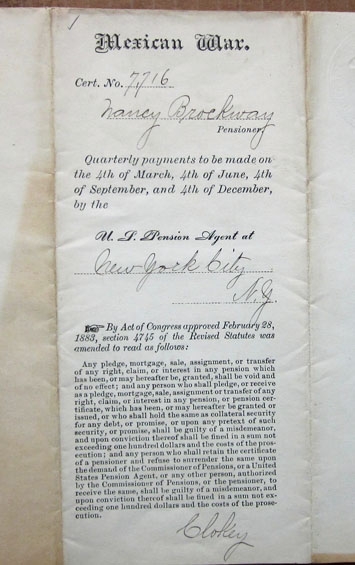 1
Mexican War.
Cert. No. 7,716
Nancy Brockway
Pensioner,
Quarterly payments to be made on
the 4th of March, 4th of June, 4th
of September, and 4th of December,
by the
U. S. Pension Agent at
New York City
N.Y.
By Act of Congress approved February 28,
1883, section 4745 of the Revised Statutes was
amended to read as follows:
Any pledge, mortgage, sale, assignment, or transfer
of any right, claim, or interest in any pension which
has been, or may hereafter be, granted, shall be void and
of no effect; and any person who shall pledge, or receive
as a pledge, mortgage, sale, assignment or transfer of any
right, claim, or interest in any pension, or pension cer-
tificate, which has been, or may hereafter be granted or
issued, or who shall hold the same as collateral security
for any debt, or promise, or upon any pretext of such
security, or promise, shall be guilty of a misdemeanor,
and upon conviction thereof shall be fined in a sum not
exceeding one hundred dollars and the costs of the pros-
ecution; and any person who shall retain the certificate
of a pensioner and refuse to surrender the same upon
the demand of the Commissioner of Pensions, or a United
States Pension Agent, or any other person, authorized
by the Commissioner of Pensions, or the pensioner, to
receive the same, shall be guilty of a misdemeanor, and
upon conviction thereof shall be fined in a sum not ex-
ceeding one hundred dollars and the costs of the prose-
cution.